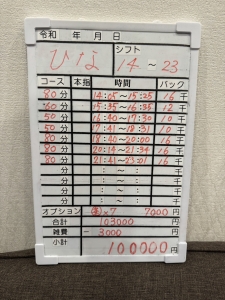 令和 年 月 日
ひな シフト 14~23
コース 本指 時間 バック
80分 14:05~15:25 16千
60分 15:35~16:35 12千
50分 16:40~17:30 10千
50分 17:41~18:31 10千
80分 18:40~20:00 16千
80分 20:14~21:34 16千
80分 21:41~23:01 16千
分 : ~ : 千
分 : ~ : 千
分 : ~ : 千
オプション ×7 7000円
合計 103000円
雑費 - 3000円
小計 100000円